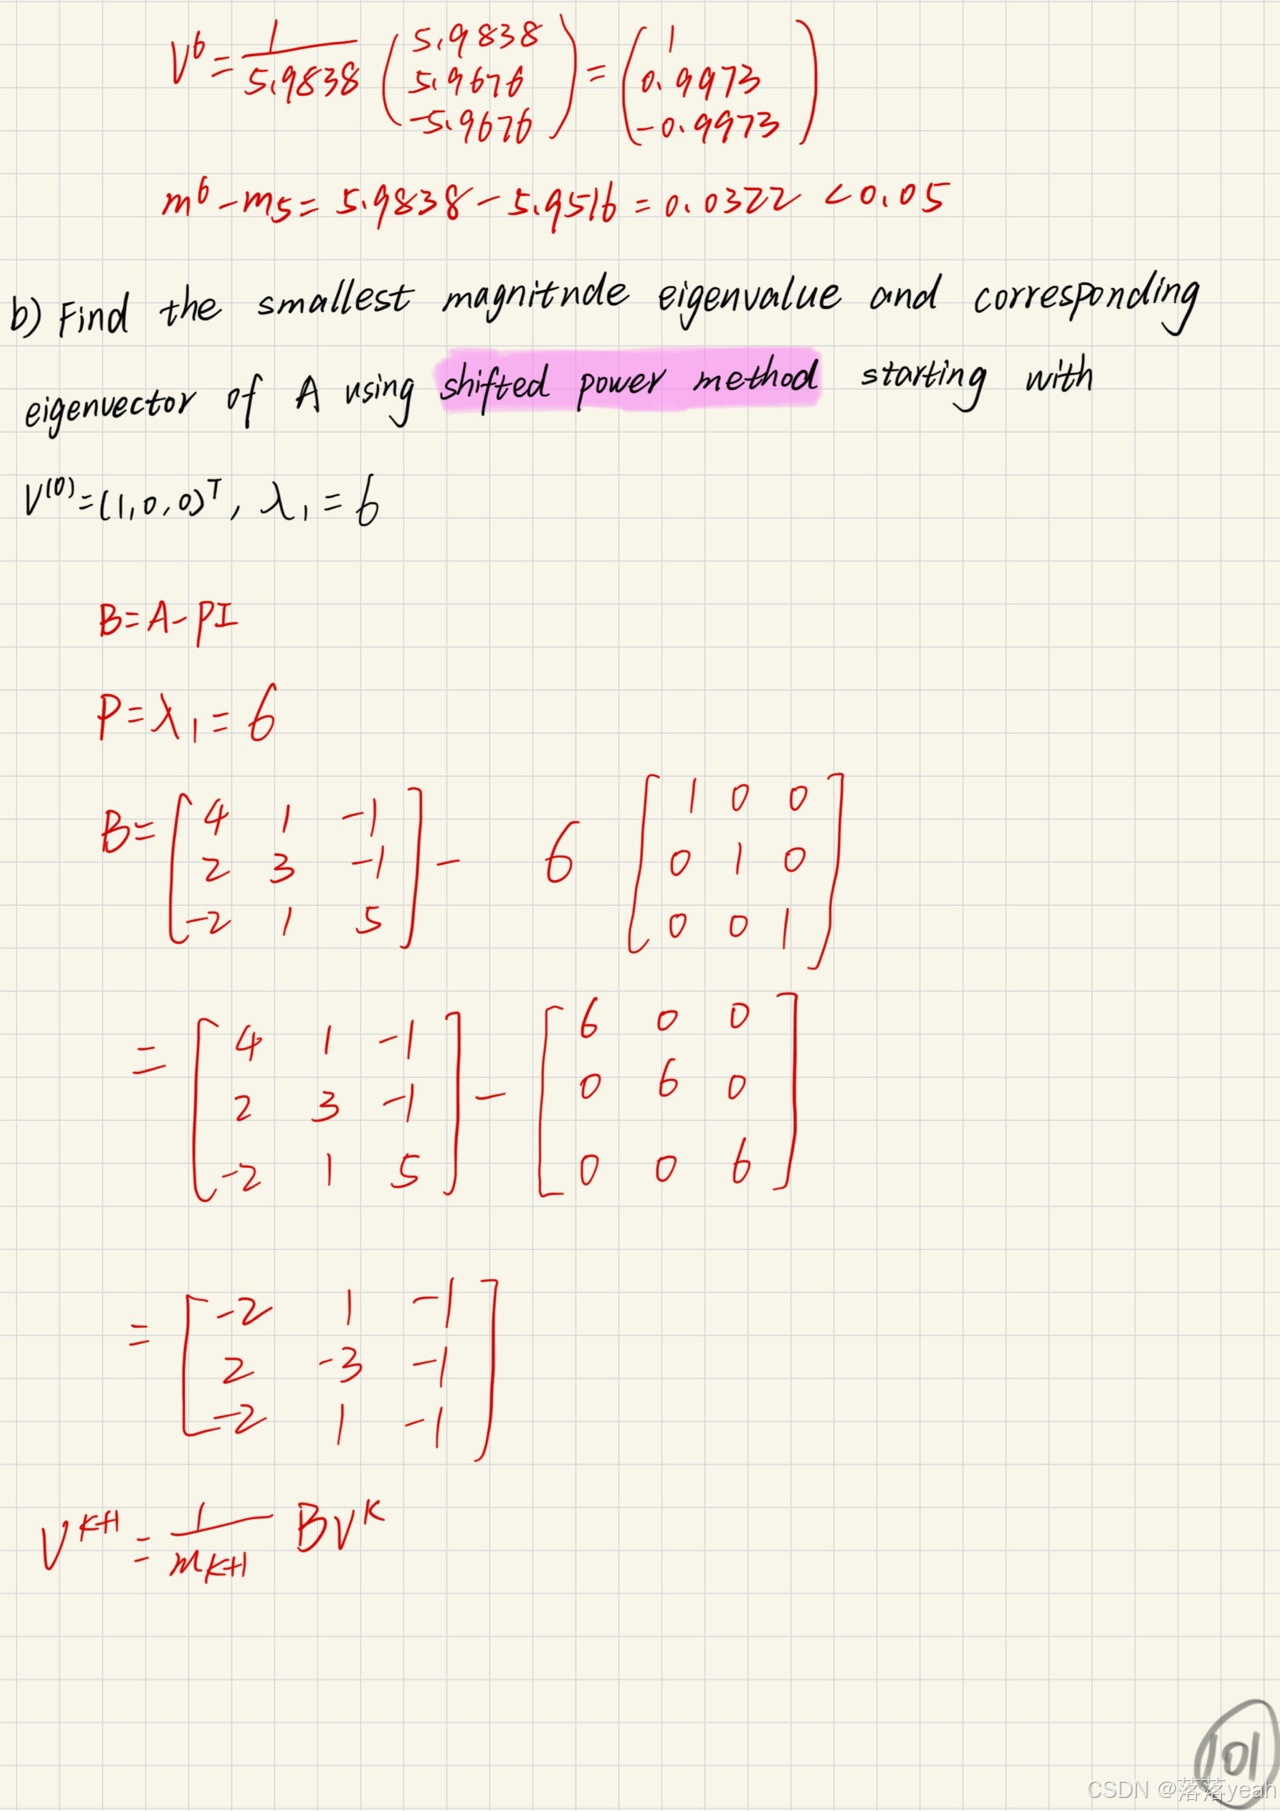 V⁶ = 1/5.9838 (5.9838 5.9676 -5.9676) = (1 0.9973 -0.9973)
m⁶ - m₅ = 5.9838 - 5.9516 = 0.0322 < 0.05
b) Find the smallest magnitude eigenvalue and corresponding
eigenvector of A using shifted power method starting with
V⁽⁰⁾ = (1, 0, 0)ᵀ, λ₁ = 6
B = A - PI
P = λ₁ = 6
B = [4 1 -1
2 3 -1
-2 1 5] - 6 [1 0 0
0 1 0
0 0 1]
= [4 1 -1
2 3 -1
-2 1 5] - [6 0 0
0 6 0
0 0 6]
= [-2 1 -1
2 -3 -1
-2 1 -1]
Vᴷ⁺¹ = 1/mK+1 BVᴷ
101
CSDN @落落yeah